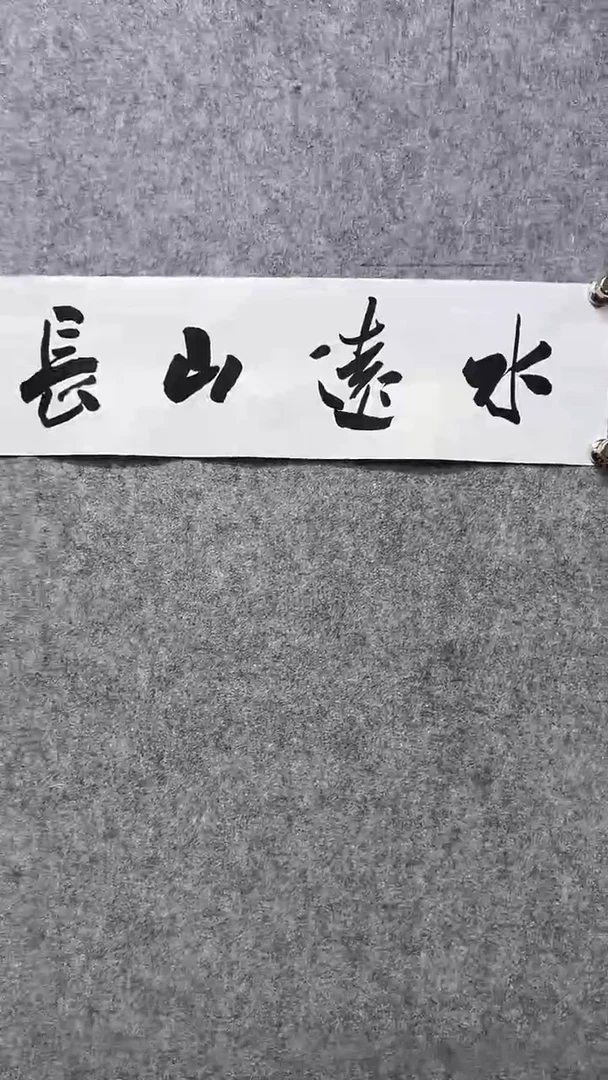 水遠山長